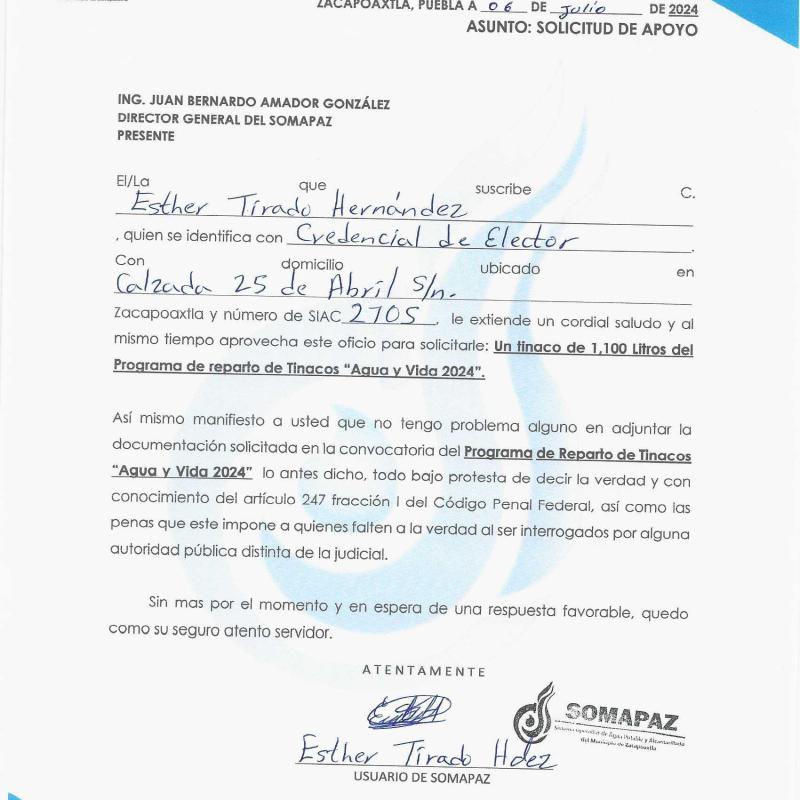 ZACAPOAXTLA, PUEBLA A 06 DE Julio DE 2024
ASUNTO: SOLICITUD DE APOYO
ING. JUAN BERNARDO AMADOR GONZÁLEZ
DIRECTOR GENERAL DEL SOMAPAZ
PRESENTE
El/La que suscribe C.
Esther Tirado Hernández
, quien se identifica con Credencial de Elector.
Con domicilio ubicado en
Calzada 25 de Abril S/n.
Zacapoaxtla y número de SIAC 2705, le extiende un cordial saludo y al
mismo tiempo aprovecha este oficio para solicitarle: Un tinaco de 1,100 Litros del
Programa de reparto de Tinacos “Agua y Vida 2024”.
Así mismo manifiesto a usted que no tengo problema alguno en adjuntar la
documentación solicitada en la convocatoria del Programa de Reparto de Tinacos
“Agua y Vida 2024” lo antes dicho, todo bajo protesta de decir la verdad y con
conocimiento del artículo 247 fracción I del Código Penal Federal, así como las
penas que este impone a quienes falten a la verdad al ser interrogados por alguna
autoridad pública distinta de la judicial.
Sin mas por el momento y en espera de una respuesta favorable, quedo
como su seguro atento servidor.
ATENTAMENTE
SOMAPAZ
Sistema operador de Agua Potable y Alcantarillado
del Municipio de Zacapoaxtla
Esther Tirado Hdez
USUARIO DE SOMAPAZ